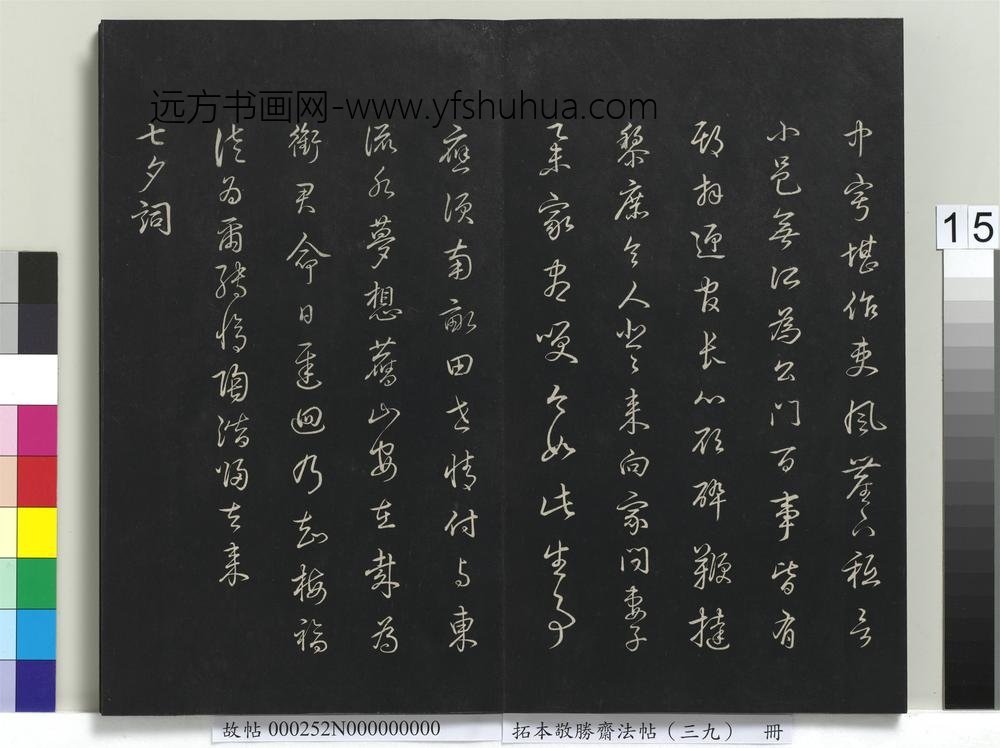 远方书画网-www.yfshuhua.com
中寧堪作吏風塵下秪言
小邑無所為公門百事皆有
期拜迎官長心欲碎鞭撻
黎庶令人悲〻來向家問妻子
舉家盡唉今如此生事
應須南畝田世情付与東
流水夢想舊山安在哉為
銜君命日遲迴乃知梅福
徒為爾轉憶陶潛歸去来
七夕詞
15
故帖 000252N000000000
拓本敬勝齋法帖（三九） 冊